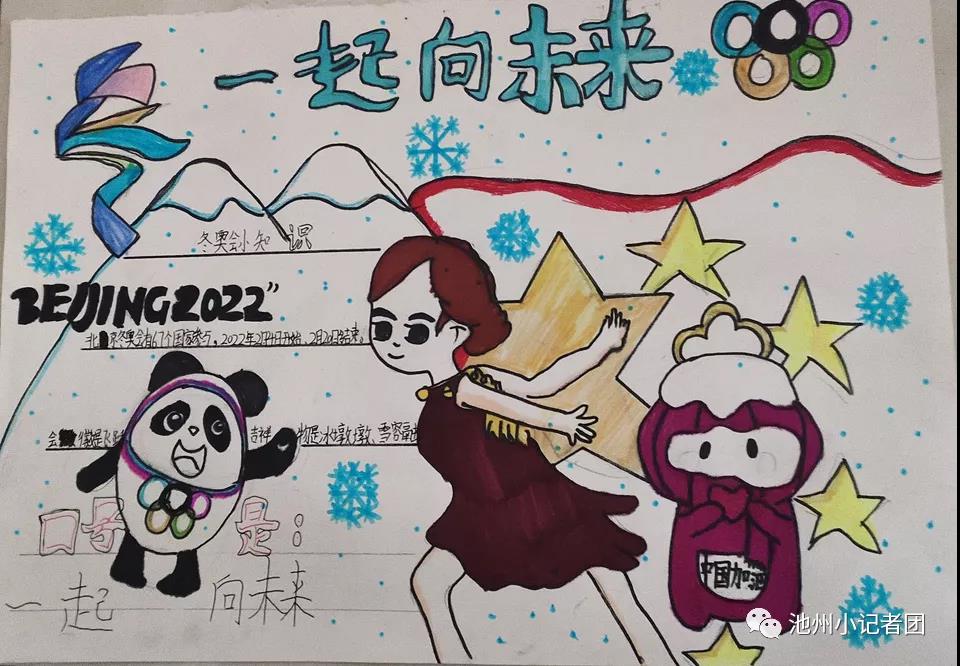 一起向未来
冬奥会小知识
BEIJING2022"
北京冬奥会有67个国家参与。2022年2月4日开始，2月20日结束。
会徽是飞 吉祥物是冰墩墩、雪容融
口号是：
一起向未来
中国加油
池州小记者团